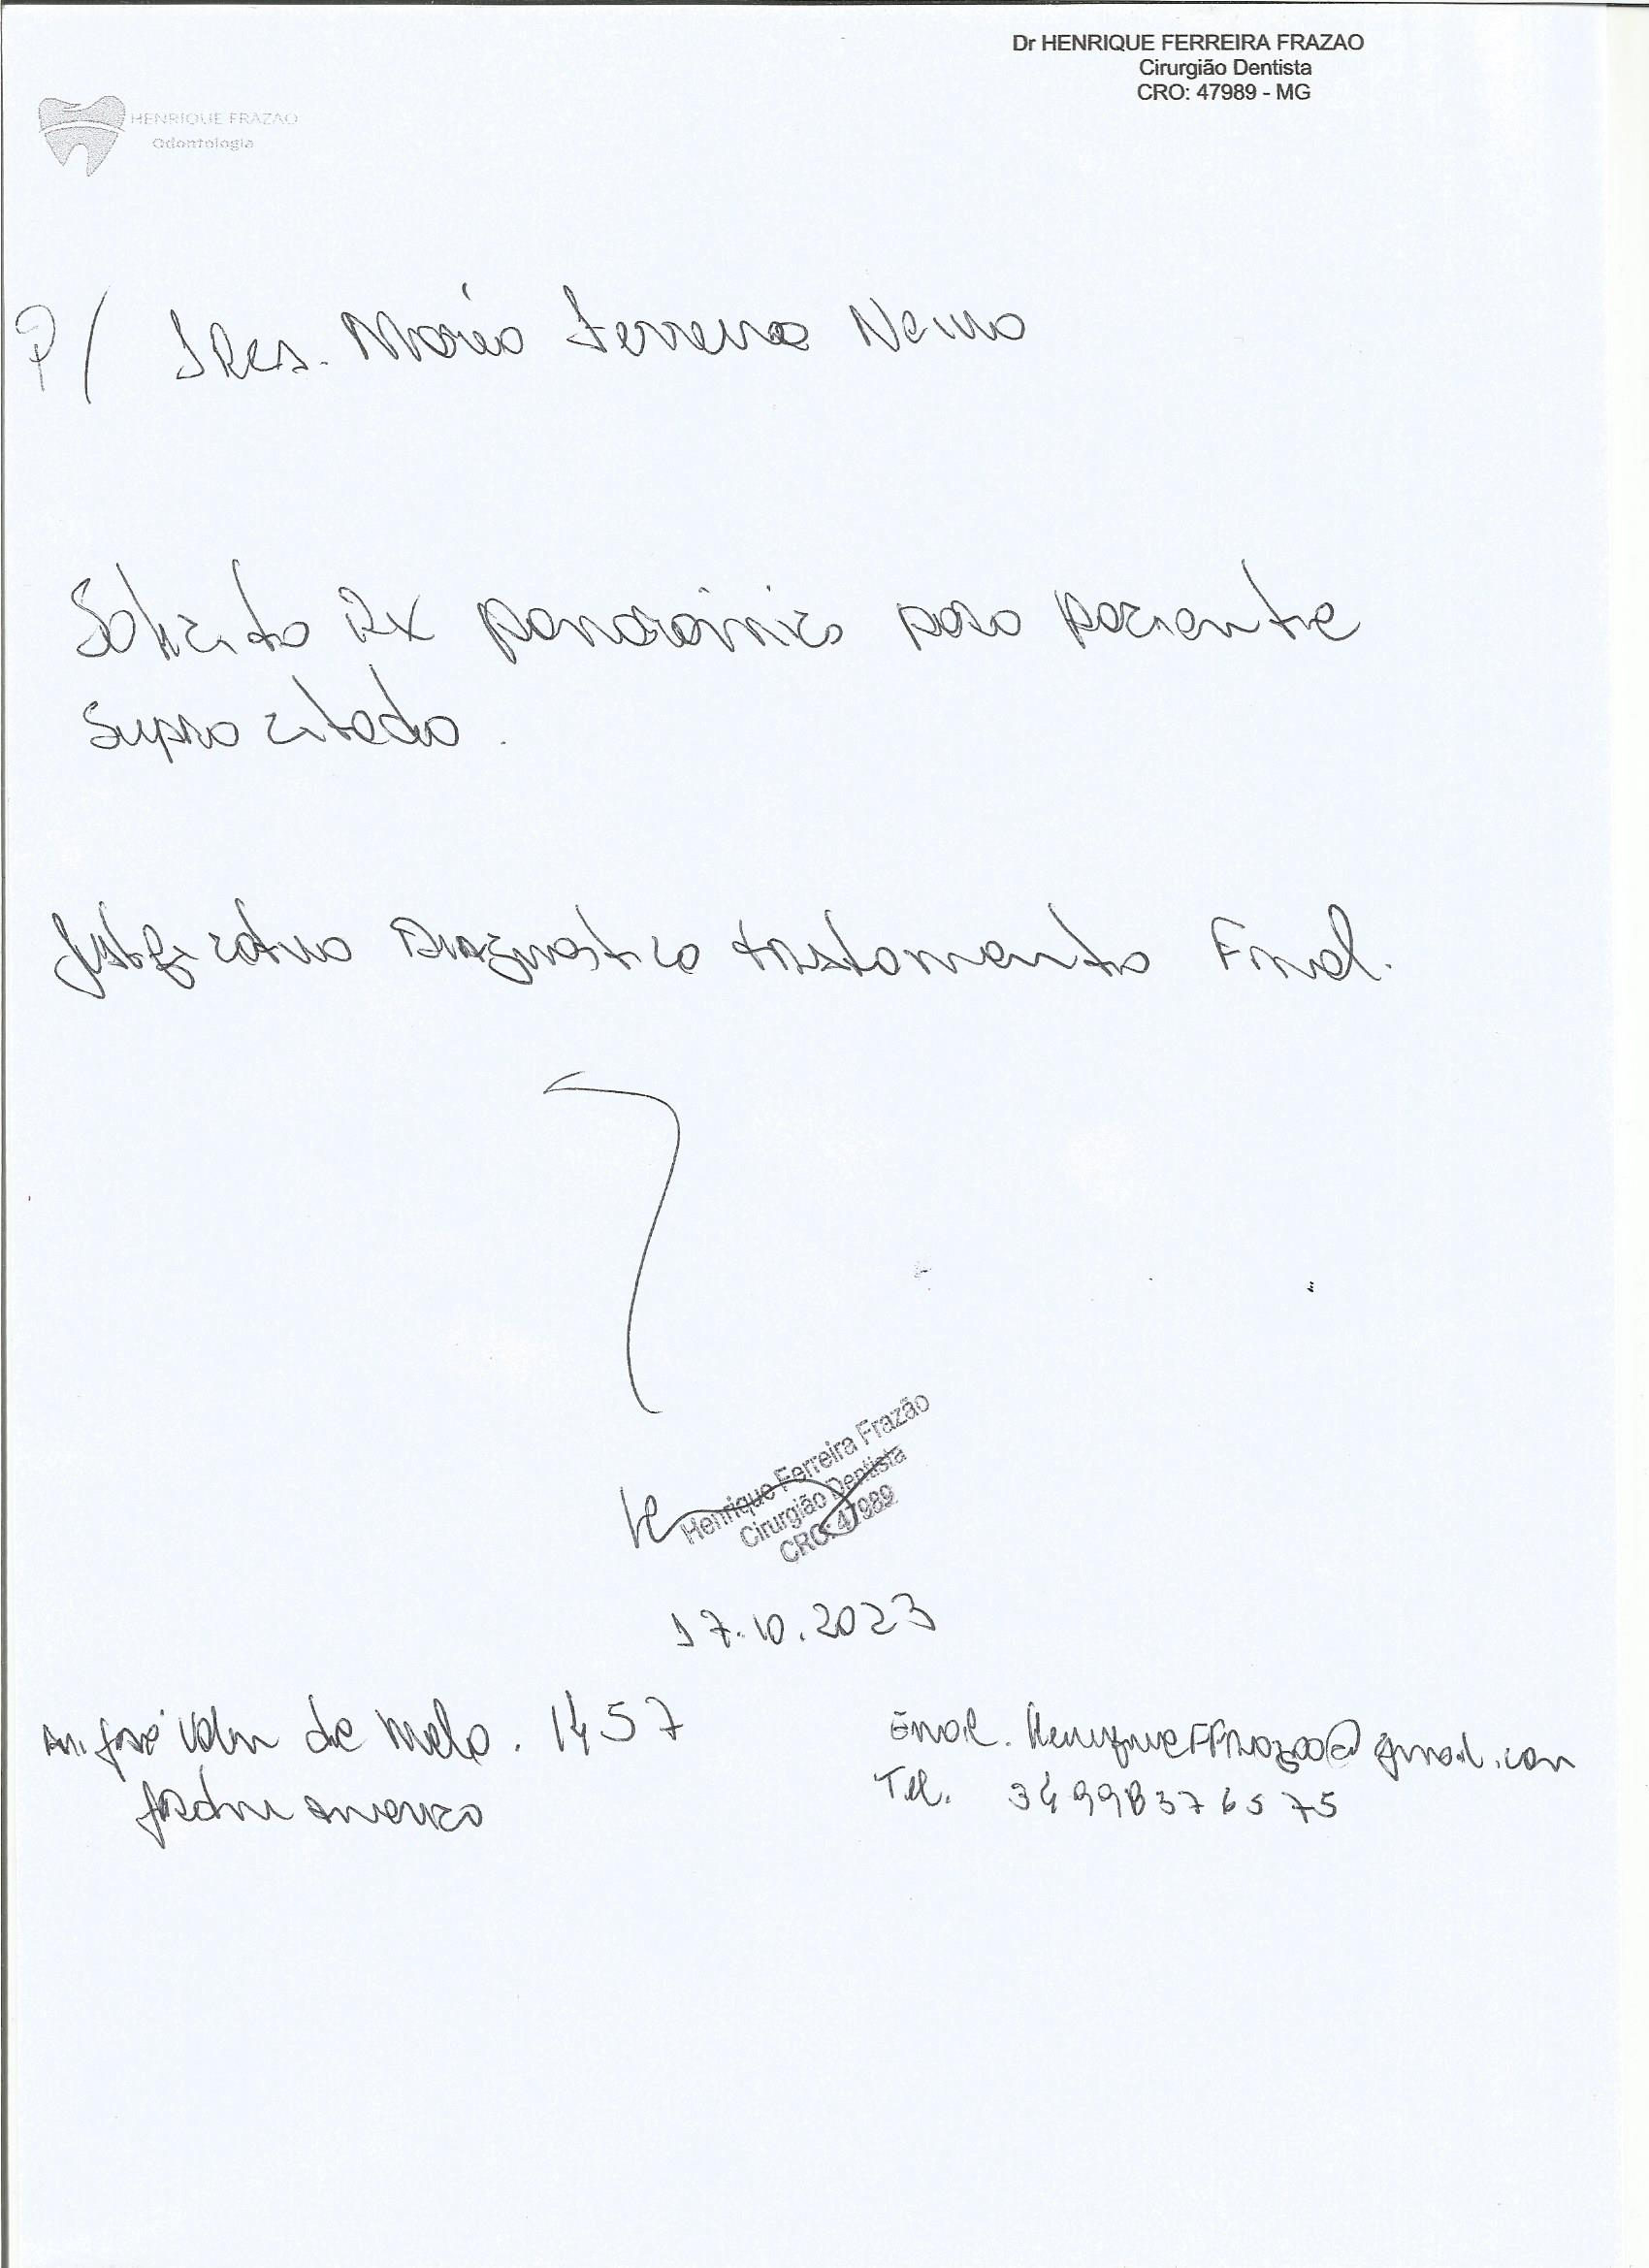 Dr HENRIQUE FERREIRA FRAZAO
Cirurgião Dentista
CRO: 47989 - MG
HENRIQUE FRAZAO
Odontologia
P/ Ferreira
Solicito RX panorâmico para paciente
supra citado.
Justificativa Diagnostico tratamento Final.
Henrique Ferreira Frazão
Cirurgião Dentista
CRO: 47989
17.10.2023
Av. José de Melo. 1457
Jardim America
Email. HenriqueFFrazao@gmail.com
Tel. 34998376575